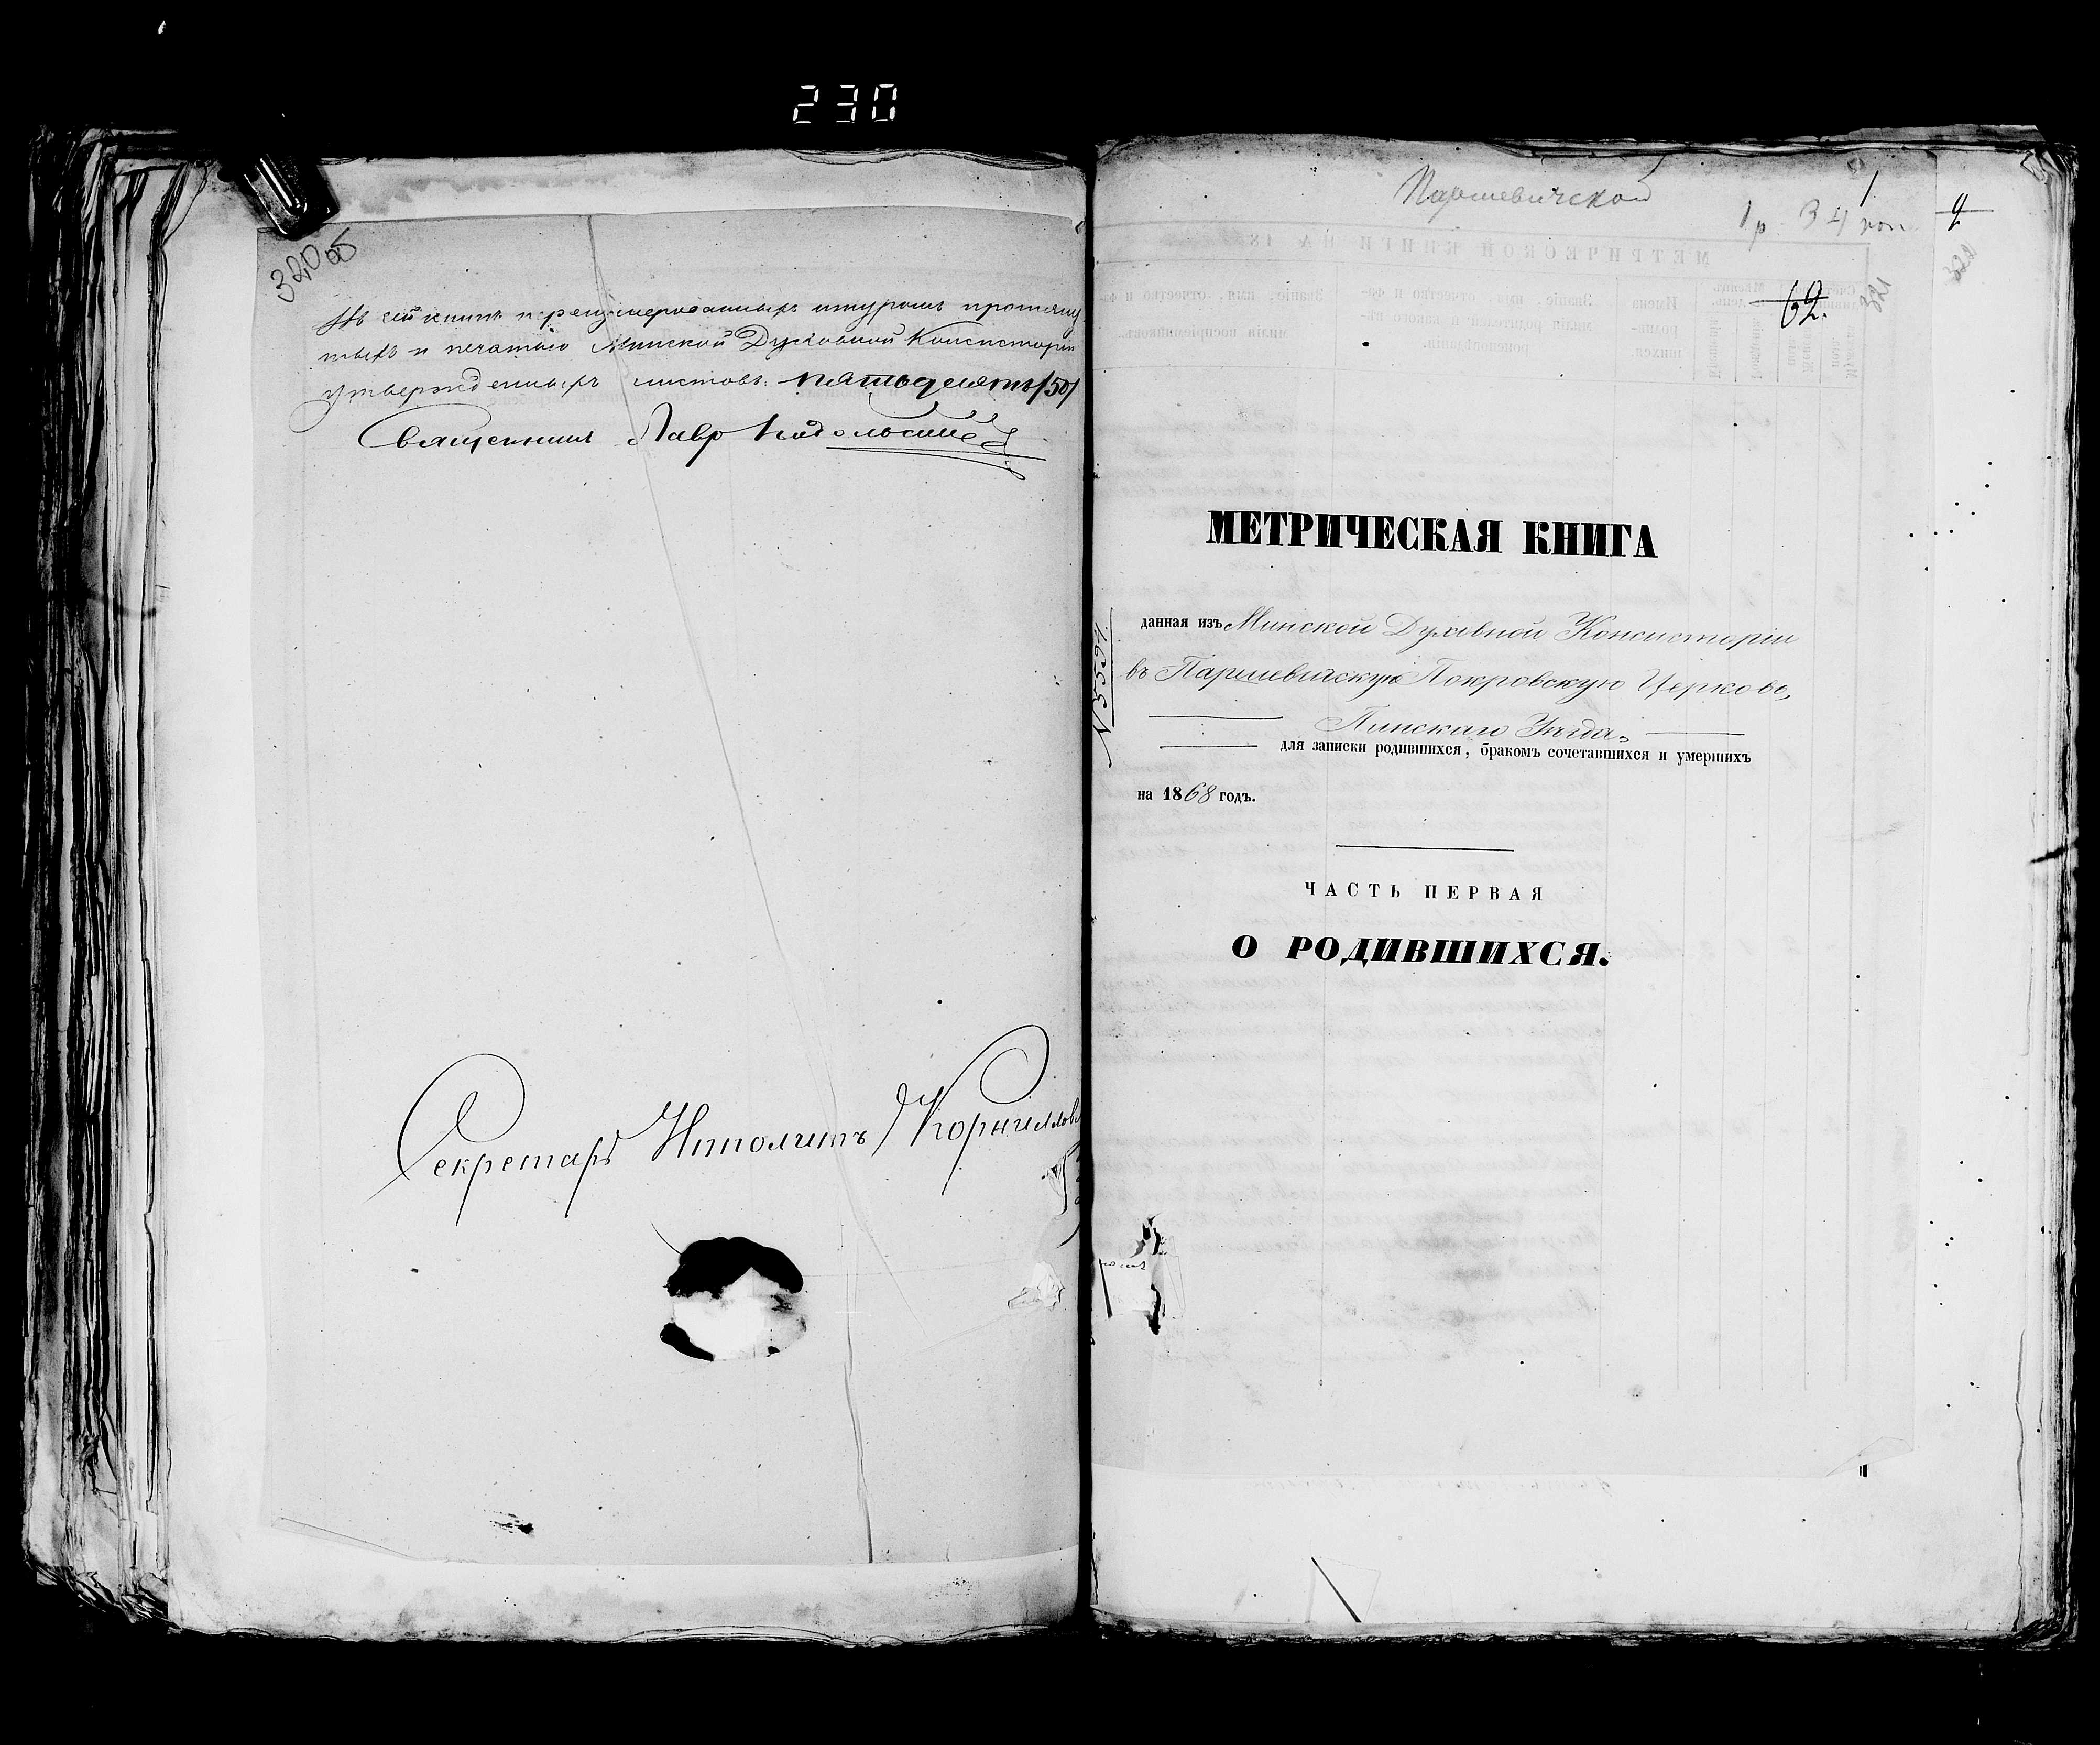 230
320об
Въ сей книгѣ пренумерованныхъ шнуромъ протяну-
тыхъ и печатью Минской Духовной Консисторіи
утвержденныхъ листовъ пятьдесятъ /50/
Священникъ Лавр
Секретарь Ипполитъ Корнилов
Паршевичской
1
1р 34 коп
2
321
62.
321
МЕТРИЧЕСКАЯ КНИГА
данная изъ Минской Духовной Консисторіи
въ Паршевичскую Покровскую Церковь,
Пинскаго Уѣзда,
для записки родившихся, бракомъ сочетавшихся и умершихъ
на 1868 годъ.
ЧАСТЬ ПЕРВАЯ
О РОДИВШИХСЯ.